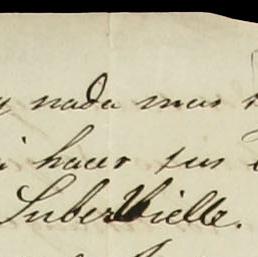 nada mas
hacer sus
Suberbielle.